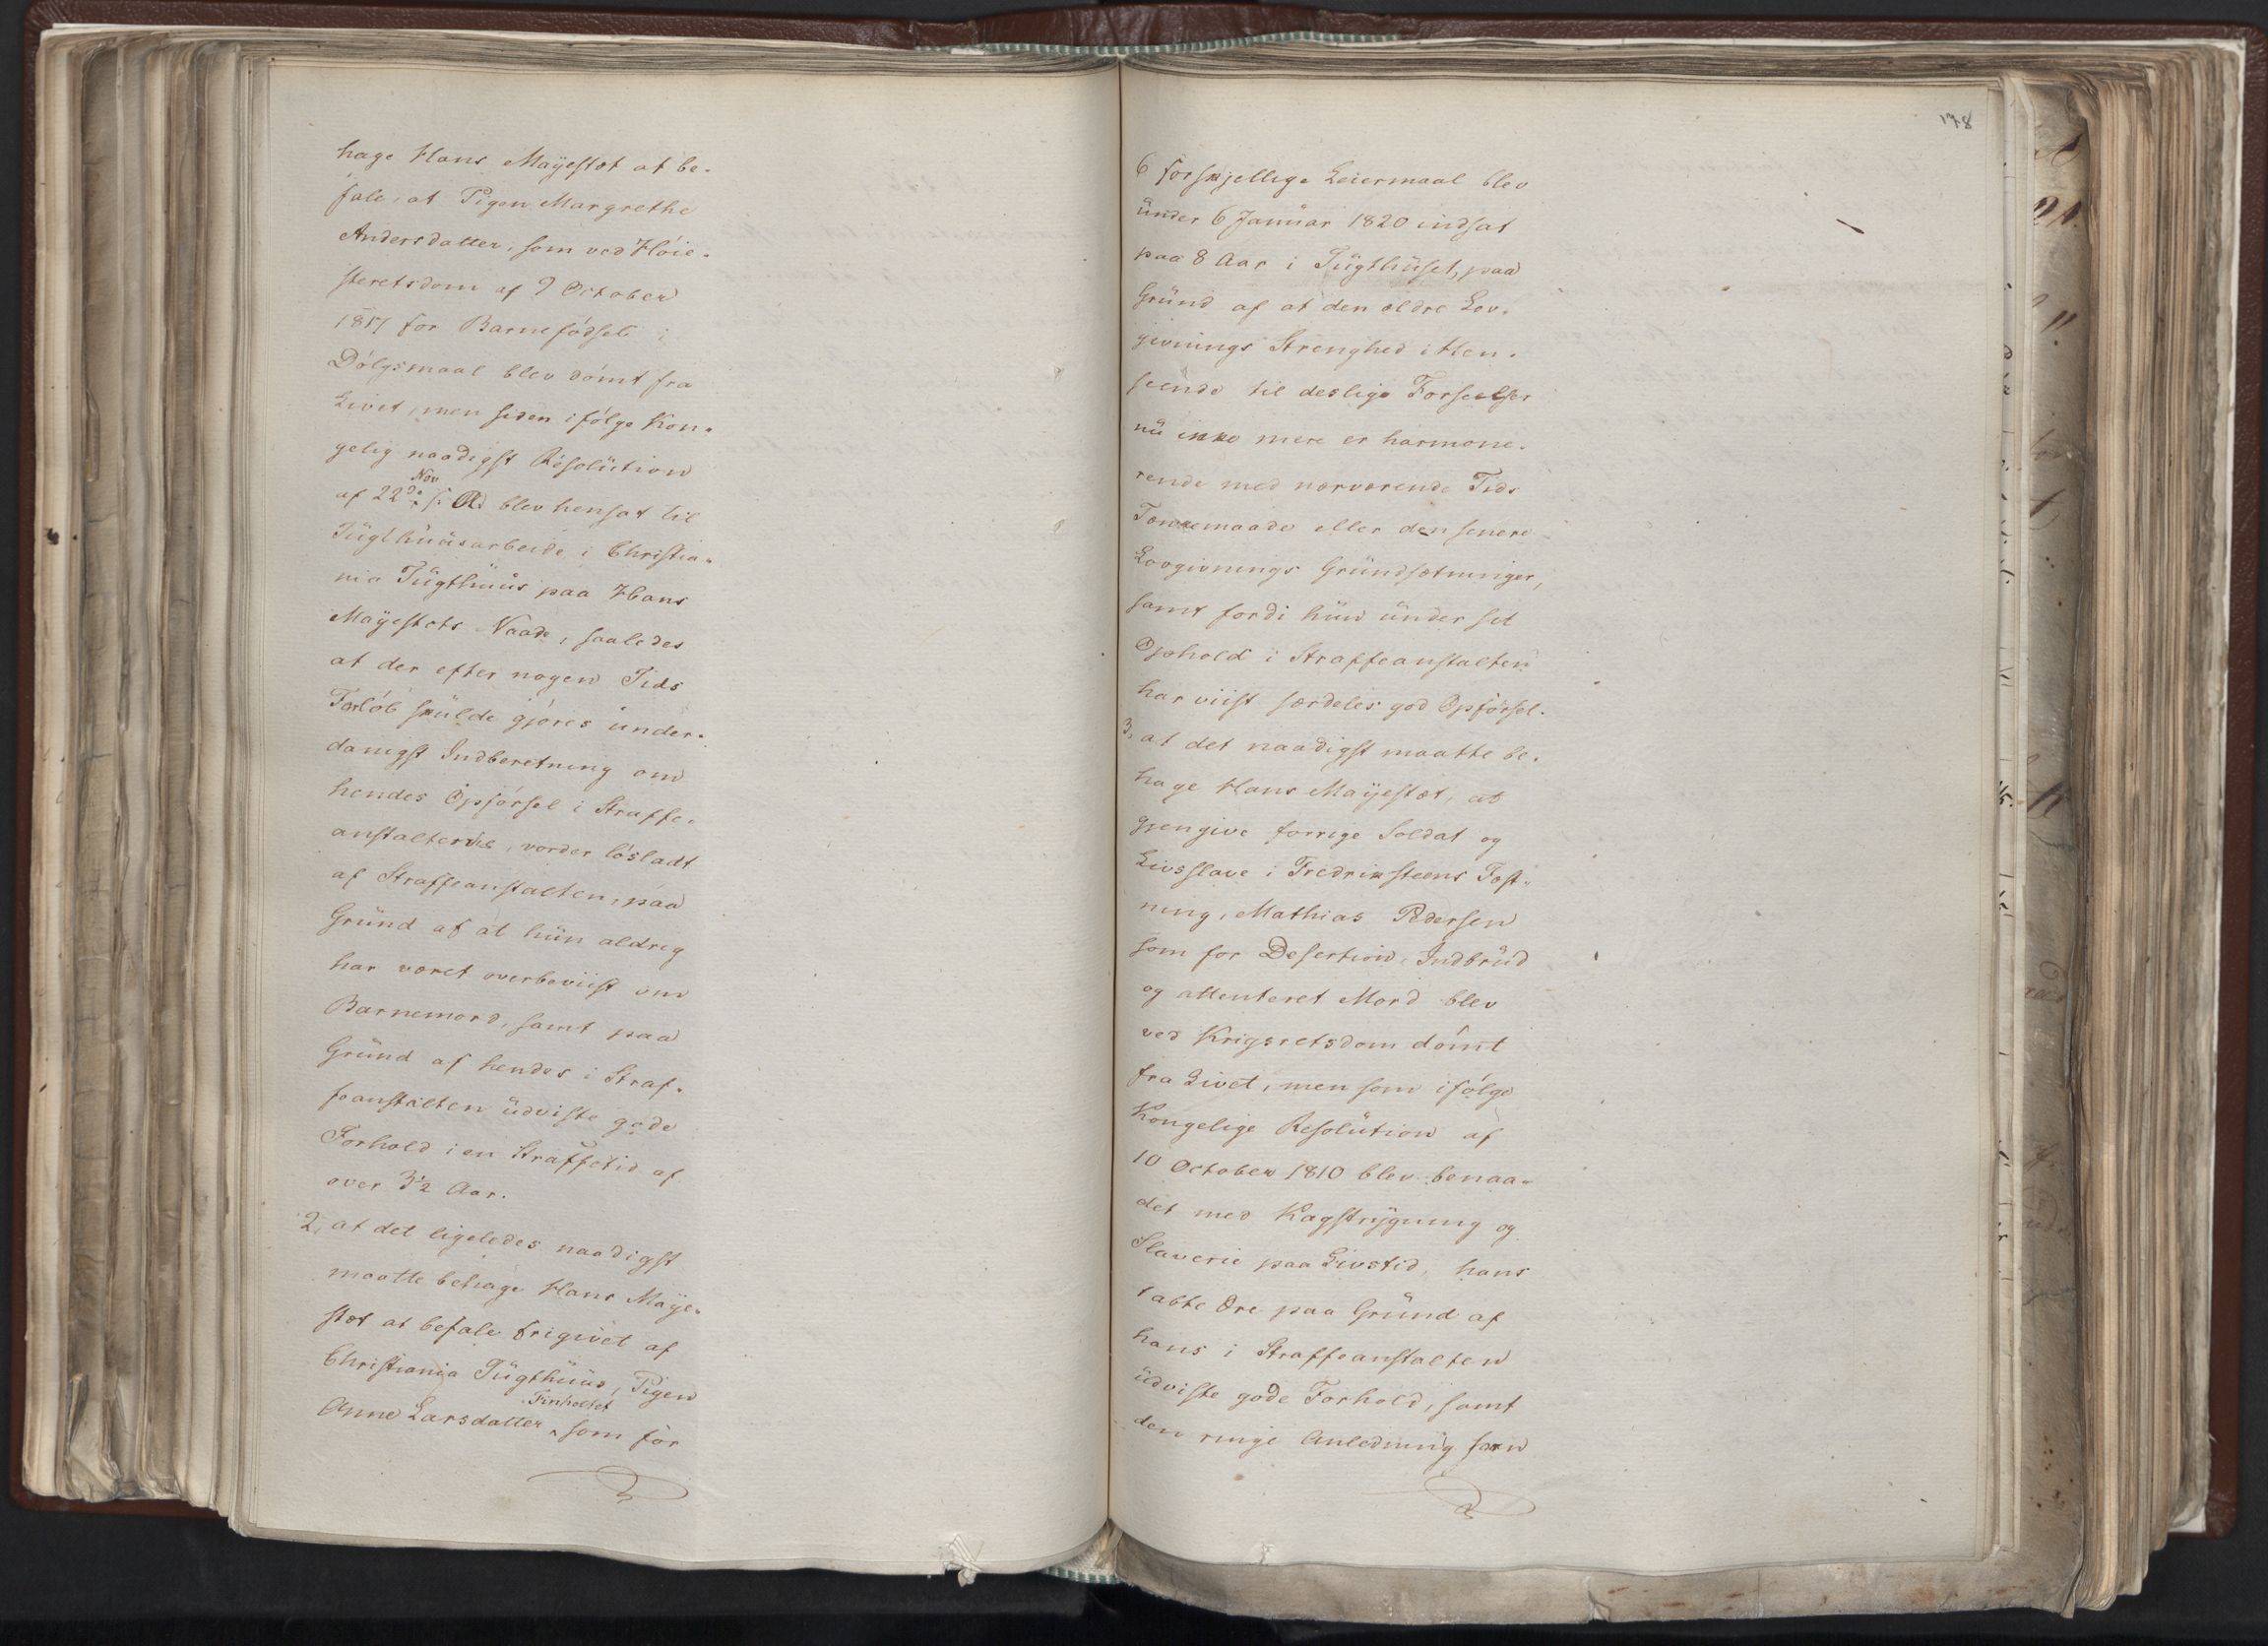 hage Hans Mayestæt at be-
fale, at Pigen Margrethe
Andersdatter, som ved Høie-
steretsdom af 9 October
1817 for Barnefødsel i
Dølgsmaal blev dømt fra
Livet, men siden ifølge Kon-
gelig naadigst Resolution
Nov
af 22de s. A. blev hensat til
Tugthuusarbeide i Christia-
nia Tugthuus paa Hans
Mayestæts Naade, saaledes
at der efter nogen Tids
Forløb skulde gjøres under-
danigst Indberetning om
hendes Opførsel i Straffe-
anstalterne, vorder løsladt
af Straffeanstalten, paa
Grund af at hun aldrig
har været overbeviist om
Barnemord, samt paa
Grund af hendes i Straf-
feanstalten udviste gode
Forhold i en Straffetid af
over 3½ Aar.
2, at det ligeledes naadigst
maatte behage Hans Maye-
stæt at befale frigivet af
Christiania Tugthuus, Pigen
Finholtet
Anne Larsdatter som for
178
6 forskjellige Leiermaal blev
under 6 Januar 1820 indsat
paa 8 Aar i Tugthuset, paa
Grund af at den ældre Lov-
givnings Strenghed i Hen-
seende til deslige Forseelser
nu ikke mere er harmone-
rende med nærværende Tids
Tænkemaade eller den senere
Lovgivnings Grundsætninger,
samt fordi hun under sit
Ophold i Straffeanstalten
har viist særdeles god Opførsel.
3, at det naadigst maatte be-
hage Hans Mayestæt, at
gjengive forrige Soldat og
Livsslave i Fredriksteens Fæst-
ning, Mathias Pedersen
som for Desertion, Indbrud
og attenteret Mord blev
ved Krigsretsdom dømt
fra Livet, men som ifølge
Kongelige Resolution af
10 October 1810 blev benaa-
det med Kagstrygning og
Slaverie paa Livstid, hans
tabte Ære paa Grund af
hans i Straffeanstalten
udviste gode Forhold, samt
den ringe Anledning han